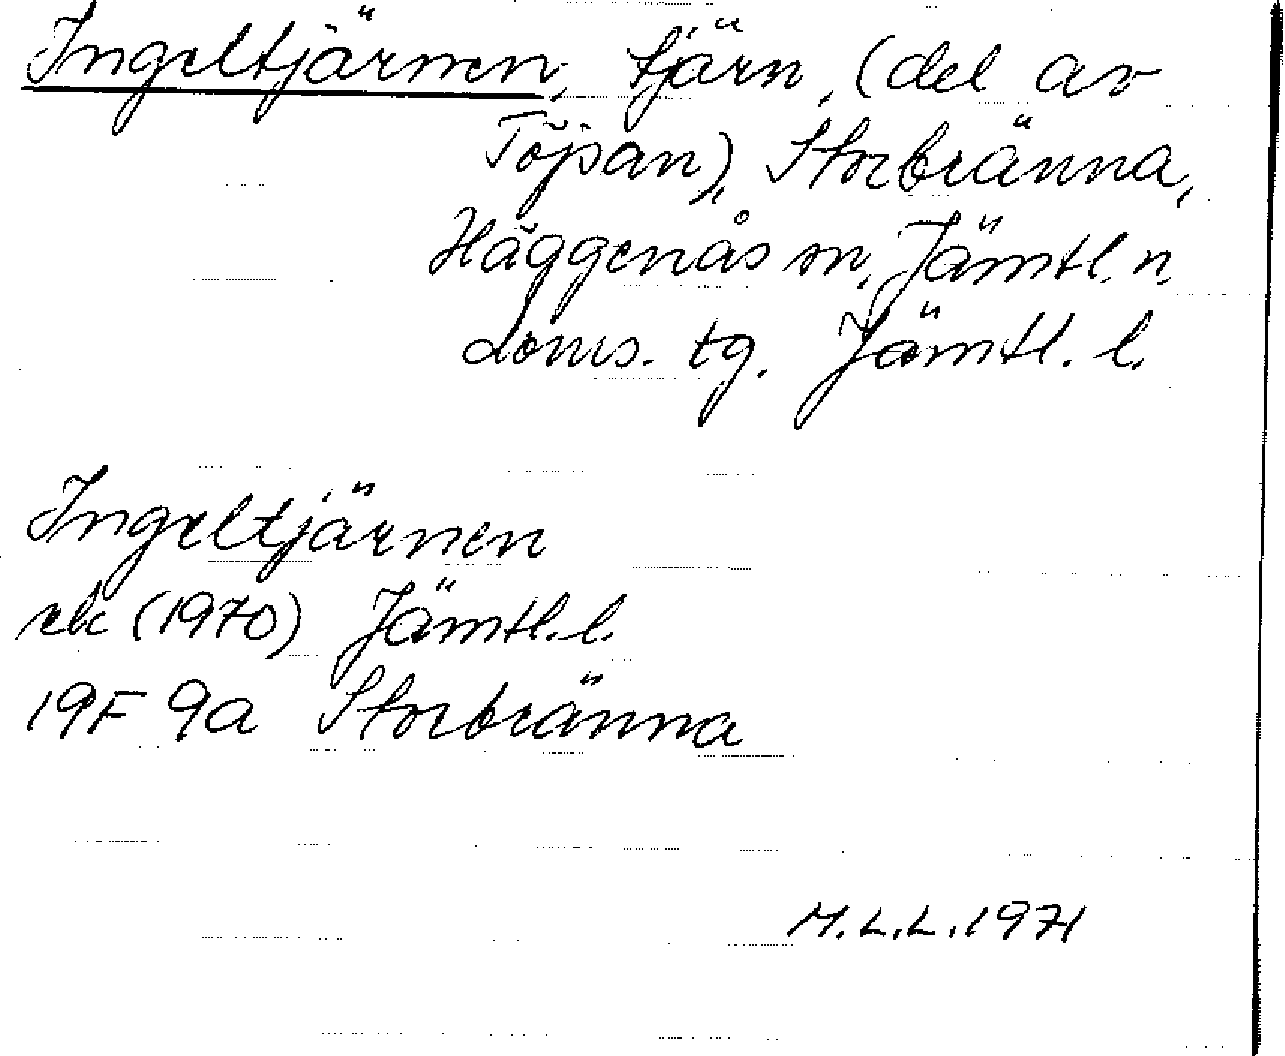 Ingeltjärnen, tjärn, (del av
Töjsan), Storbränna,
Häggenås sn, Jämtl. n.
doms. tg. Jämtl. l.
Ingeltjärnen
rek (1970) Jämtl. l.
19F 9a Storbränna
M.L.L. 1971